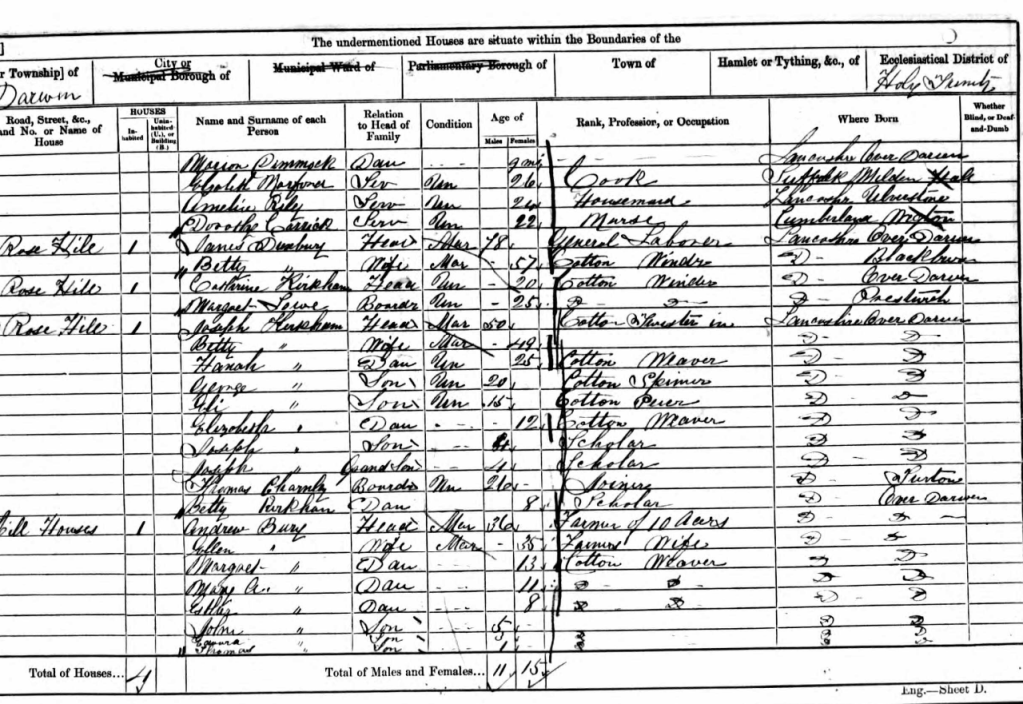 ]
The undermentioned Houses are situate within the Boundaries of the
r Township] of
City or Municipal Borough of
Municipal Ward of
Parliamentary Borough of
Town of
Hamlet or Tything, &c., of
Ecclesiastical District of
Darwin
Holy Trinity
Road, Street, &c., and No. or Name of House
HOUSES
In-habited
Unin-habited (U.), or Building (B.)
Name and Surname of each Person
Relation to Head of Family
Condition
Age of
Males
Females
Rank, Profession, or Occupation
Where Born
Whether Blind, or Deaf-and-Dumb
Marion Dimmock Dau 9 Lancashire Over Darwen
Serv Un 26 Cook Suffolk Milden Hall
Amelia Riley Serv Un 24 Housemaid Lancashire Ulverstone
Dorothy Carrick Serv Un 22 Nurse Cumberland
Rose Hill 1 James Head Mar 78 General Laborer Lancashire Over Darwen
Betty " Wife Mar 57 Cotton Winder D Blackburn
Rose Hill 1 Catherine Kirkham Head Un 20 Cotton Winder D Over Darwen
Margaret Lowe Boardr Un 25 D D D Prestwich
Rose Hill 1 Joseph Kirkham Head Mar 50 Cotton Twister in Lancashire Over Darwen
Betty " Wife Mar 49 D D
Hanah " Dau Un 25 Cotton Weaver D D
George " Son Un 20 Cotton Spinner D D
Eli " Son Un 15 Cotton D D
Elizabeth " Dau 12 Cotton Weaver D D
Joseph " Son Scholar D D
Joseph " Grand Son 4 Scholar D D
Thomas Charnley Boardr Un 26 Joiner D Turton
Betty Kirkham Dau 8 Scholar D Over Darwen
Hill Houses 1 Andrew Bury Head Mar 36 Farmer of 10 Acers D D
Ellen " Wife Mar 35 Farmers Wife D D
Margaret " Dau 13 Cotton Weaver D D
Mary A. " Dau 11 D D D D
Esther " Dau 8 D D D D
John " Son 5 D D
Edward " Son 3 D D D
Thomas " Son 1
Total of Houses... 4
Total of Males and Females... 11 15
Eng.—Sheet D.